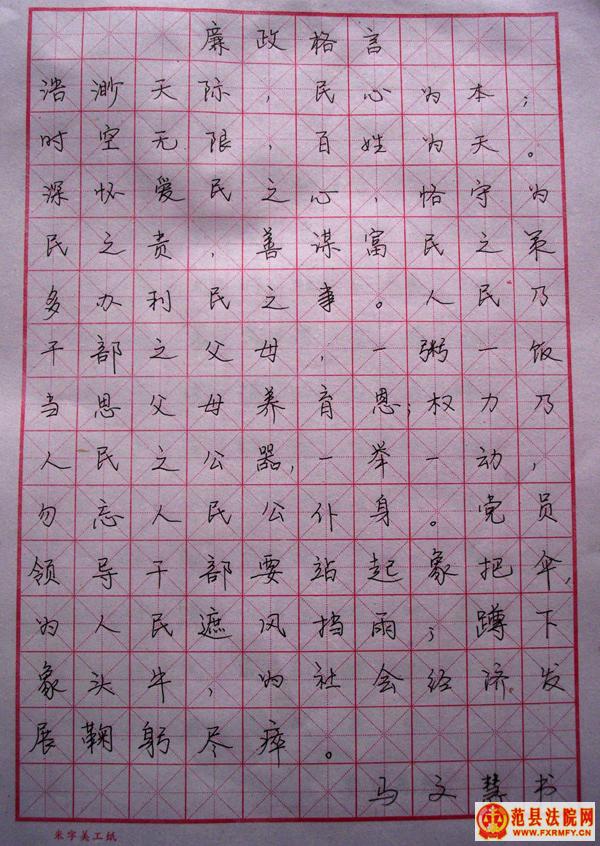 廉政格言
浩渺天际,民心为本;
时空无限,百姓为天。
深怀爱民之心,恪守为
民之责,善谋富民之策
多办利民之事。人民乃
干部之父母,一粥一饭
当思父母养育恩;权力乃
人民之公器,一举一动,
勿忘人民公仆身。党员
领导干部要站起象把伞,
为人民遮风挡雨;蹲下
象头牛,为社会经济发
展鞠躬尽瘁。
马文慧书
米字美工纸
范县法院网
WWW.FXRMFY.CN